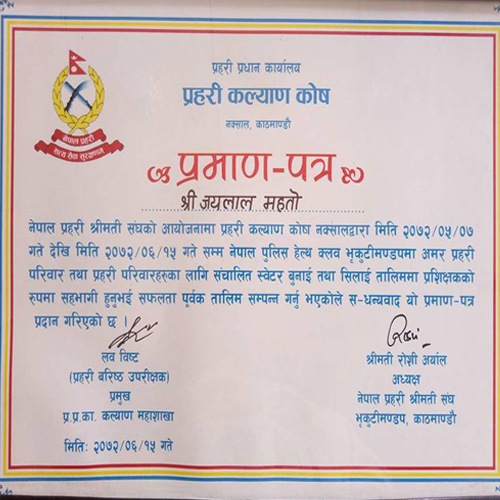 प्रहरी प्रधान कार्यालय
प्रहरी कल्याण कोष
नक्साल, काठमाण्डौ
नेपाल प्रहरी
सत्य सेवा सुरक्षणम्
प्रमाण-पत्र
श्री जयलाल महतो
नेपाल प्रहरी श्रीमती संघको आयोजनामा प्रहरी कल्याण कोष नक्सालद्वारा मिति २०७२/०५/०७
गते देखि मिति २०७२/०६/१५ गते सम्म नेपाल पुलिस हेल्थ क्लव भृकुटीमण्डपमा अमर प्रहरी
परिवार तथा प्रहरी परिवारहरुका लागि संचालित स्वेटर बुनाई तथा सिलाई तालिममा प्रशिक्षकको
रुपमा सहभागी हुनुभई सफलता पूर्वक तालिम सम्पन्न गर्नु भएकोले स-धन्यवाद यो प्रमाण-पत्र
प्रदान गरिएको छ ।
लव विष्ट
(प्रहरी बरिष्ठ उपरीक्षक)
प्रमुख
प्र.प्र.का. कल्याण महाशाखा
मितिः २०७२/०६/१५ गते
श्रीमती रोशी अर्याल
अध्यक्ष
नेपाल प्रहरी श्रीमती संघ
भृकुटीमण्डप, काठमाण्डौ